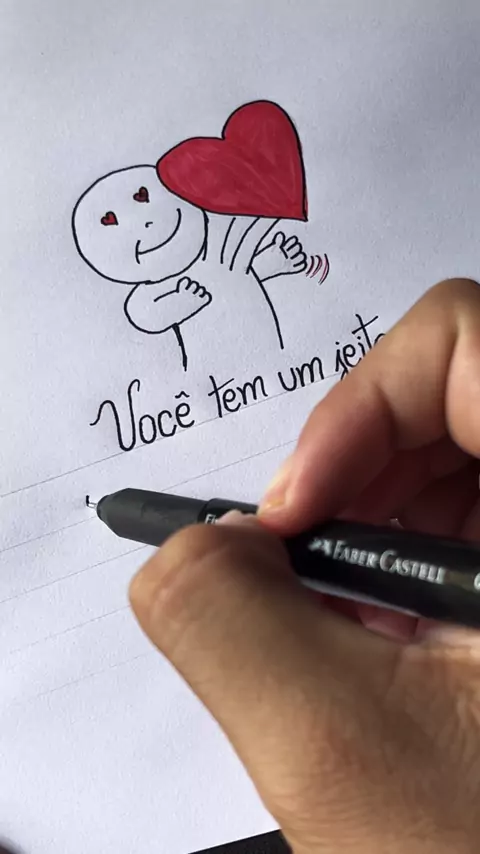 Você tem um jeito
FABER CASTELL